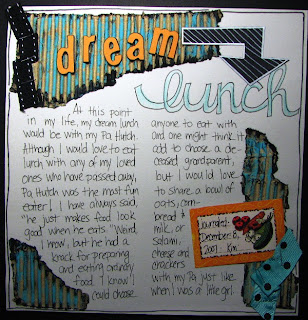 dream
lunch
At this point
in my life, my dream lunch
would be with my Pa Hutch.
Although I would love to eat
lunch with any of my loved
ones who have passed away,
Pa Hutch was the most fun
eater! I have always said,
"he just makes food look
good" when he eats. "Weird,
I know, but he had a
knack for preparing
and eating ordinary
food. I know I
could choose
anyone to eat with
and one might think it
odd to chose a de-
ceased grandparent,
but I would love
to share a bowl of
oats, corn-
bread &
milk, or
salami,
cheese and
crackers
with my Pa just like
when I was a little girl.
Journaled:
December 8,
2007 - Kim